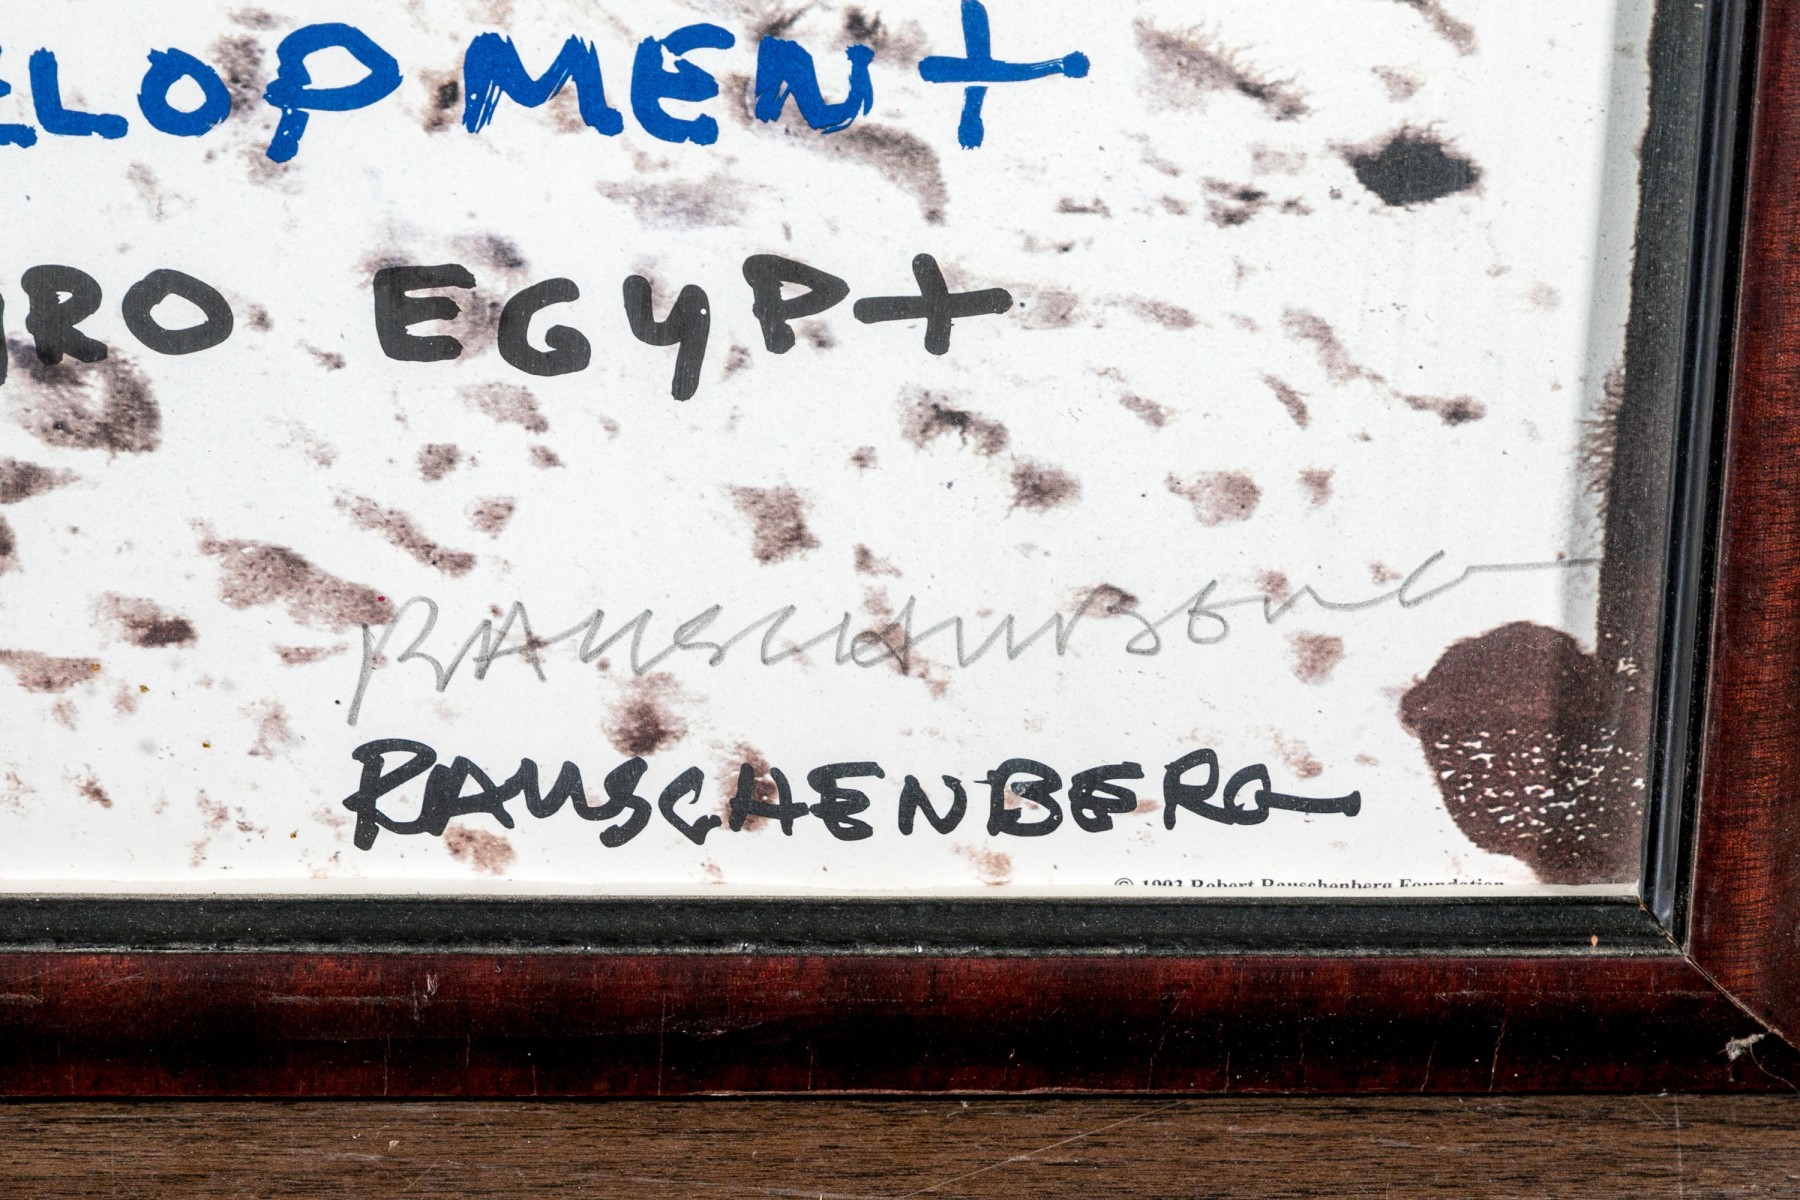 ELOPMENT
IRO EGYPT
RAUSCHENBERG
RAUSCHENBERG
© 1993 Robert Rauschenberg Foundation